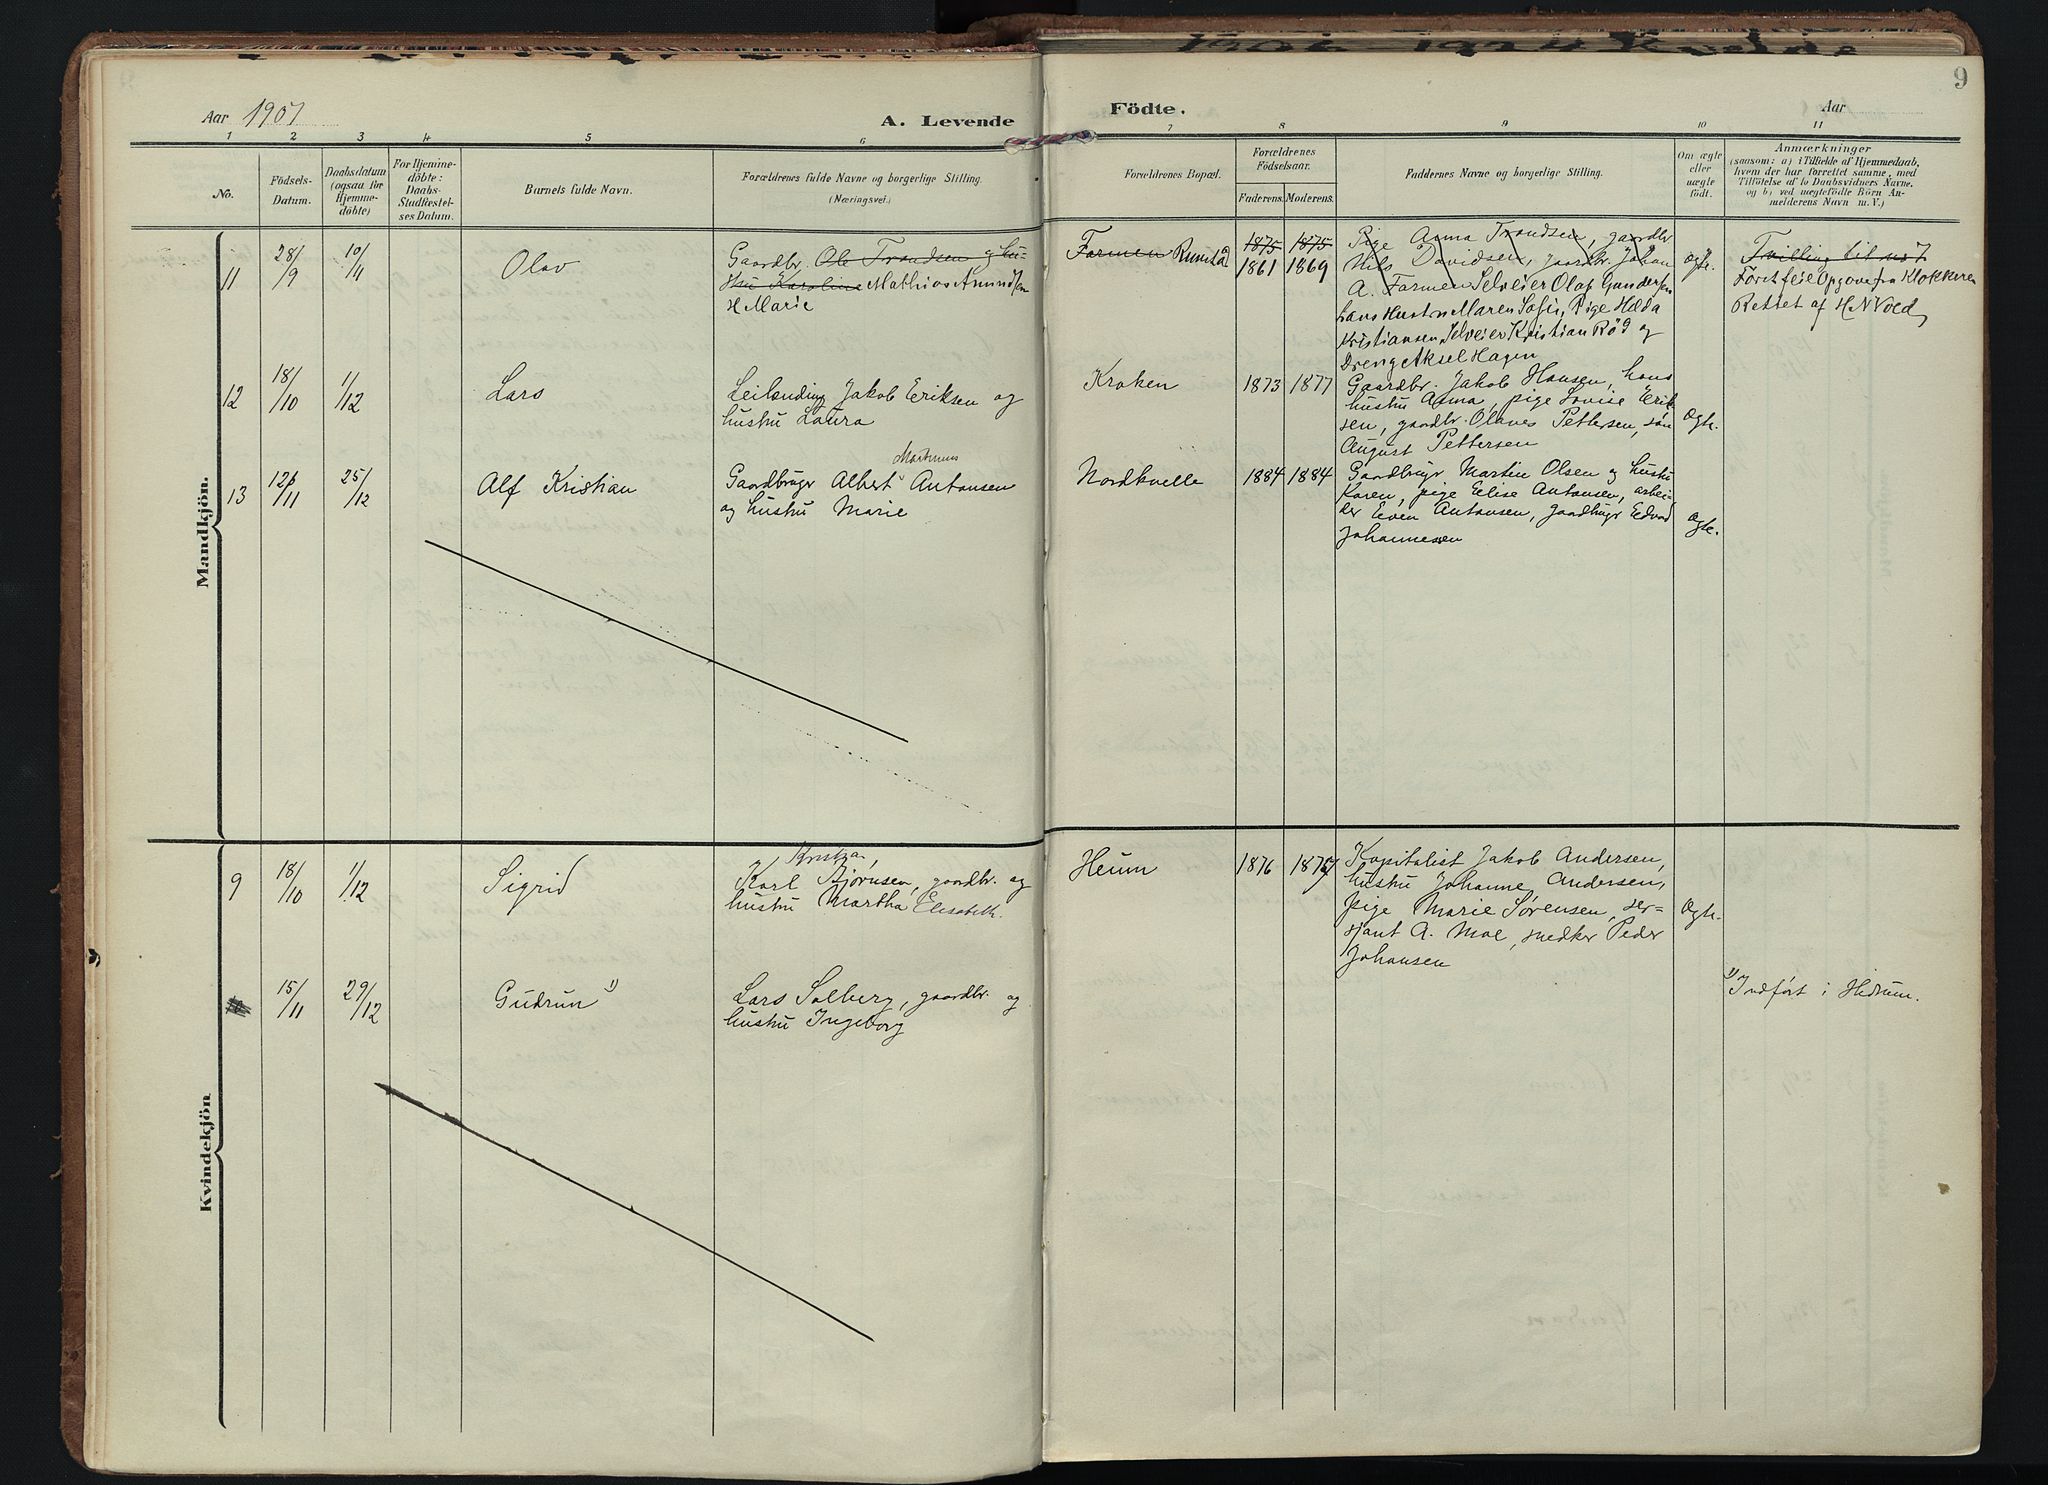 9
Aar 1907
A. Levende
Födte.
Aar
1 2 3 4 5 6 7 8 9 10 11
No.
Födsels-
Datum.
Daabsdatum
(ogsaa for
Hjemme-
döbte)
For Hjemme-
döbte:
Daabs-
Stadfæstel-
ses Datum.
Barnets fulde Navn.
Forældrenes fulde Navne og borgerlige Stilling.
(Næringsvei.)
Forældrenes Bopæl.
Forældrenes
Födselsaar.
Faderens. Moderens.
Faddernes Navne og borgerlige Stilling.
Om ægte
eller
uægte
födt.
Anmærkninger
(saasom: a) i Tilfælde af Hjemmedaab,
hvem der har forrettet samme, med
Tilföielse af to Daabsvidners Navne,
og b) ved uægtefödte Börn An-
melderens Navn m. V.)
Mandkjön.
11
28/9
10/4
Olav
Gaardbr. Ole Trondsen og hu-
stru Karoline Mathias Amundsen
H Marie
Farmen Rimstad
1875 1875
1861 1869
Pige Anna Trondsen, gaardbr
Nils Davidsen, gaardbr. Johan
A. Farmen Selveier Olaf Gundersen
hans Hustru Maren Sofie, Pige Hilda
Kristiansen, Selveier Kristian Rød og
Dreng Aksel Hagen
Ægte.
Tvilling til no 7
Først feil Opgave fra Klokkeren
Rettet af H N Vold
12
18/10
1/12
Lars
Leilænding Jakob Eriksen og
hustru Laura
Kroken
1873 1877
Gaardbr. Jakob Hansen, hans
hustru Anna, pige Lovise Erik-
sen, gaardbr. Olaves Pettersen, søn
August Pettersen
Ægte.
13
/11
25/12
Alf Kristian
Martinius
Gaardbruger Albert Antonsen
og hustru Marie
Nordkvelle
1884 1884
Gaardbrugr Martin Olsen og hustru
Karen, pige Elise Antonsen, arbei-
der Even Antonsen, gaardbrugr Edvard
Johannesen
Ægte.
Kvindekjön.
9
18/10
1/12
Sigrid
Kristian,
Karl Bjørnsen, gaardbr. og
hustru Martha Elisabeth.
Heum
1876
Kapitalist Jakob Andersen,
hustru Johanne Andersen,
pige Marie Sørensen, ser-
sjant A. Moe, snedker Peder
Johansen
Ægte.
15/11
29/12
Gudrun 1)
Lars Solberg, gaardbr. og
hustru Ingeborg
1) Indført i Hedrum.